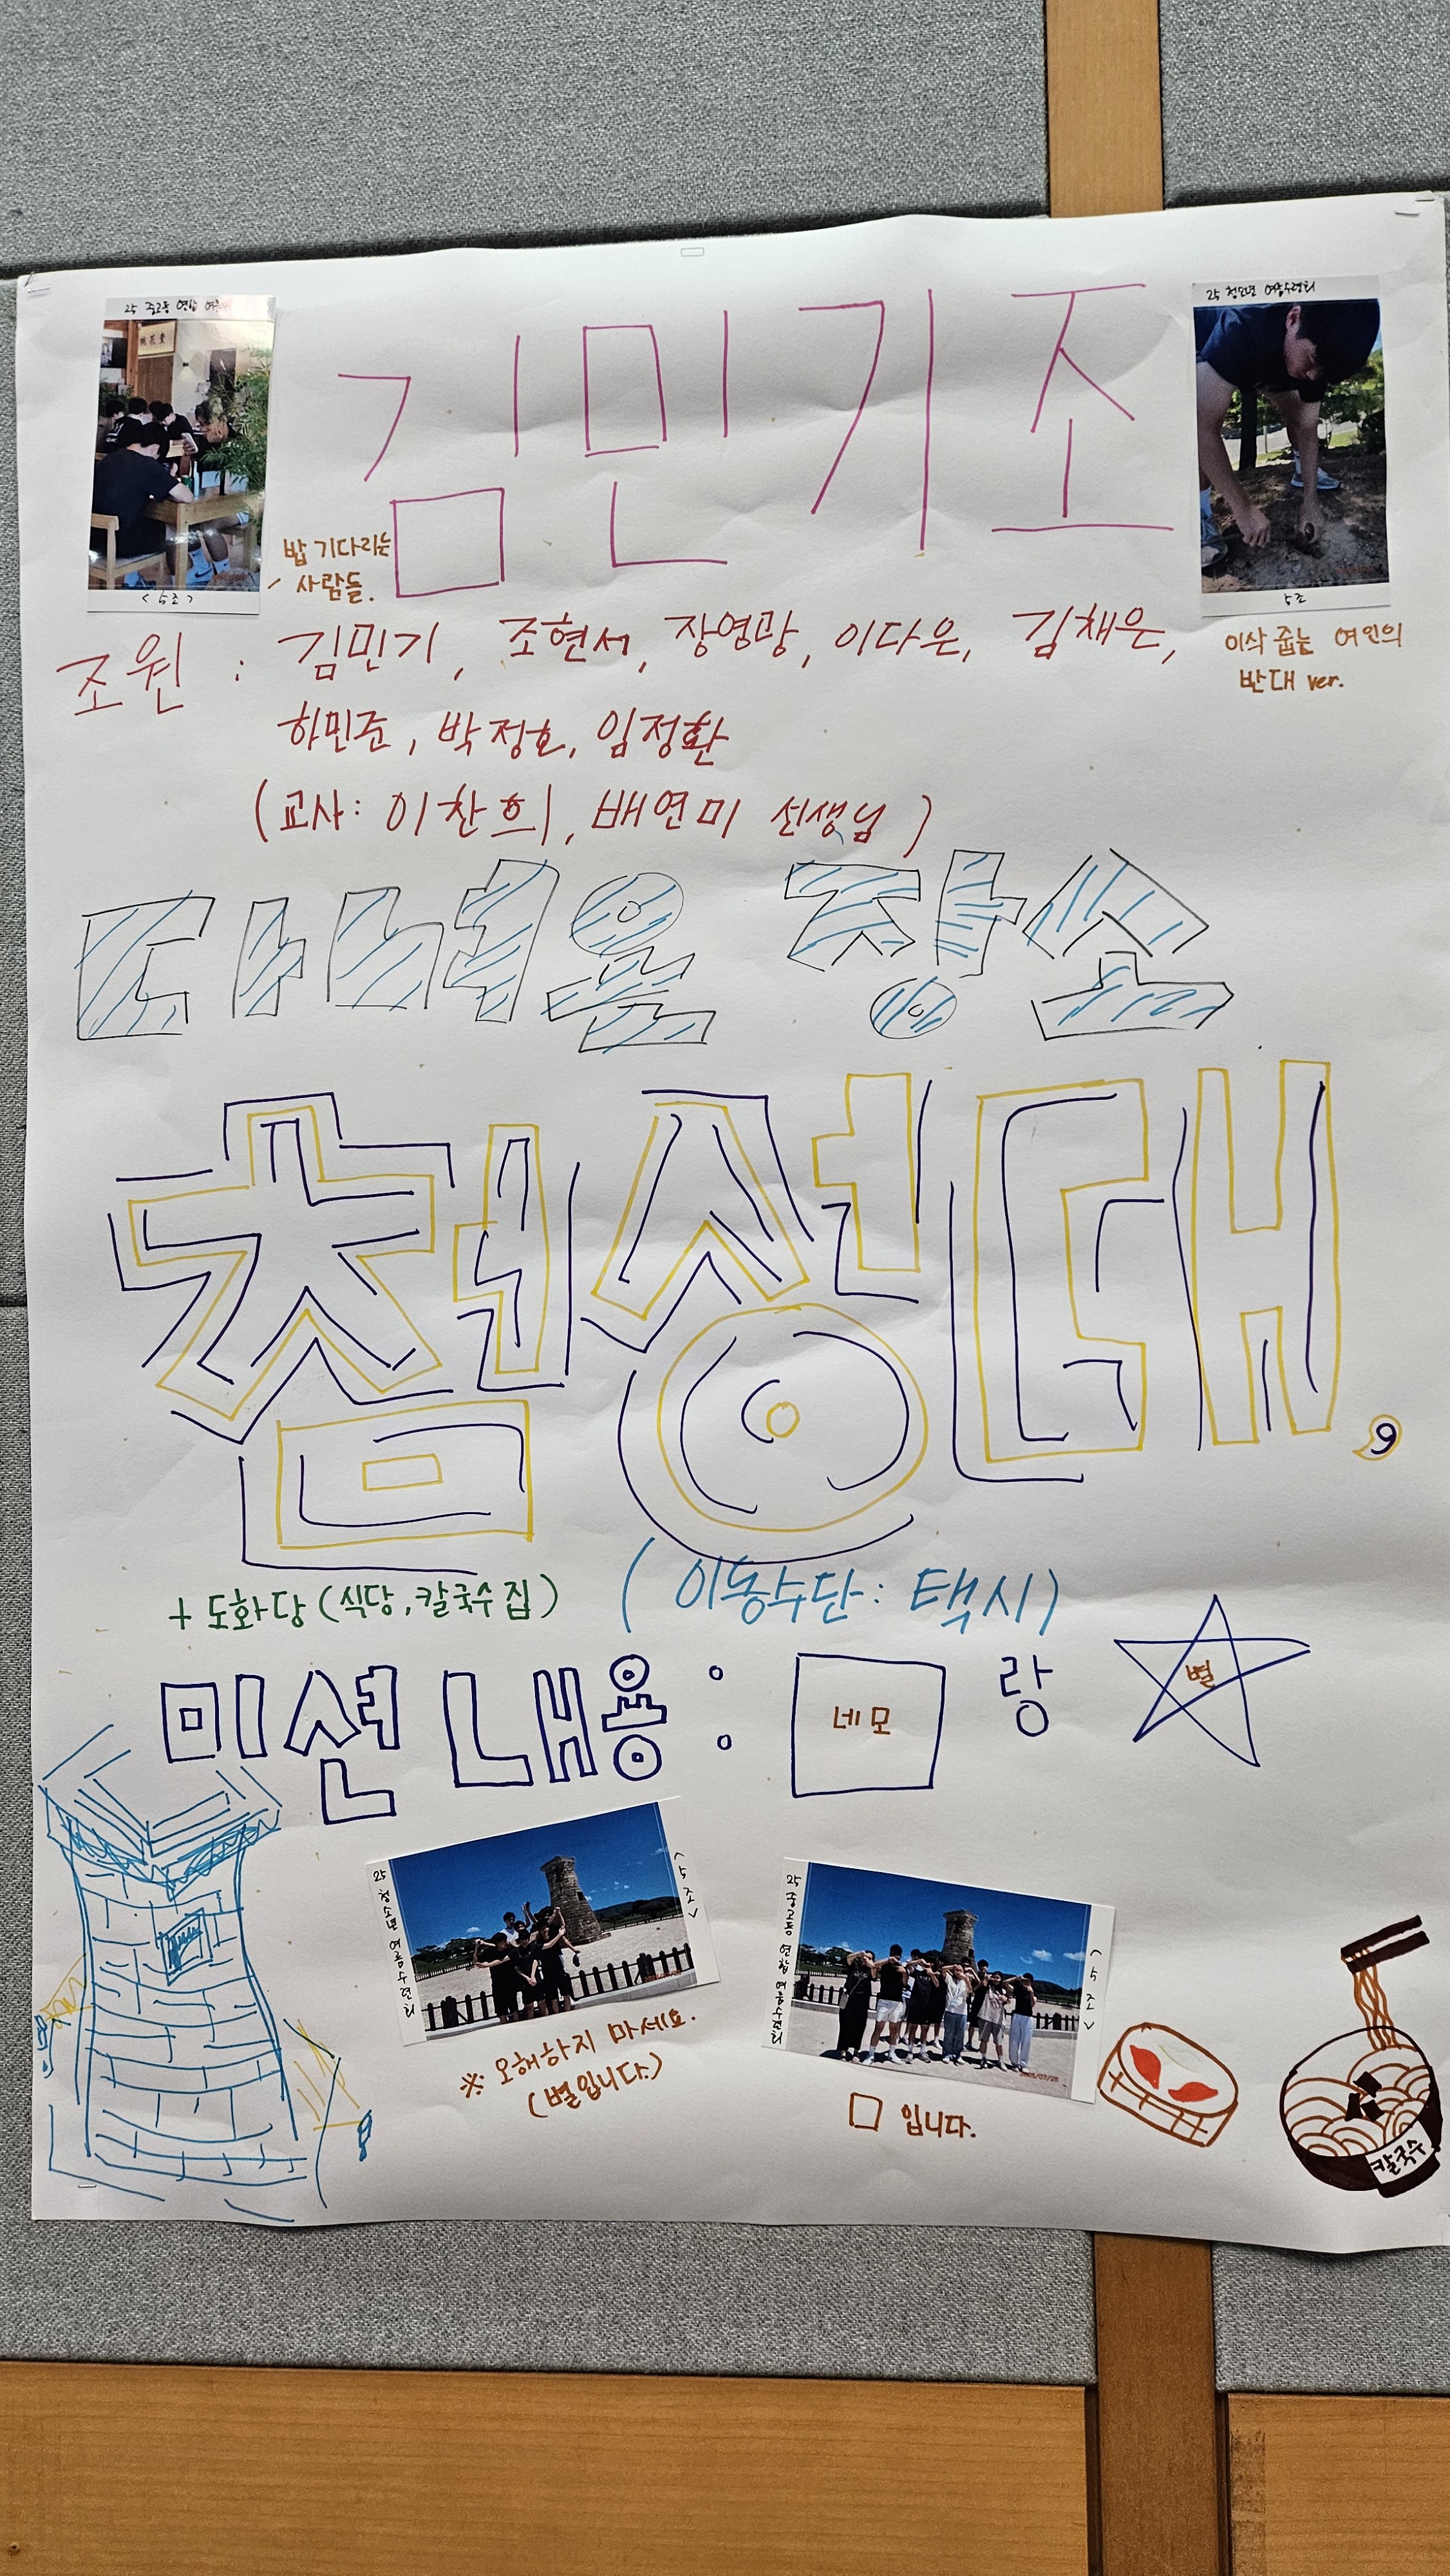 25 중고등 연합 여름
25 청소년 여름수련회
김민기조
桃花堂
밥 기다리는
사람들.
<5조>
5조
조원 : 김민기, 조현서, 장영광, 이다은, 김채은,
이삭 줍는 여인의
반대 ver.
하민준, 박정호, 임정환
(교사: 이찬희, 배연미 선생님)
다녀온 장소
첨성대,
+ 도화당 (식당, 칼국수집)
(이동수단: 택시)
미션 내용 : 네모 랑 별
25 청소년 여름수련회
<5조>
25 중고등 연합 여름수련회
<5조>
2025/07/26
※ 오해하지 마세요.
(별입니다.)
□ 입니다.
칼국수